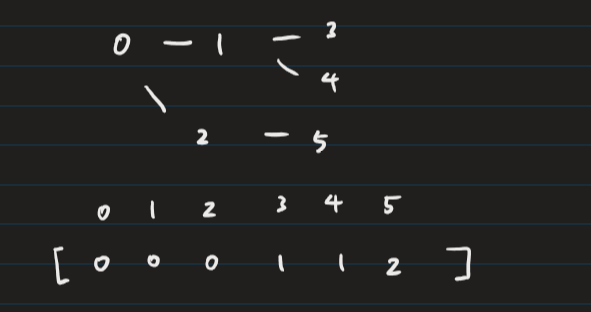 0 — 1 — 3
\ 4
\ 2 — 5
0 1 2 3 4 5
[ 0 0 0 1 1 2 ]